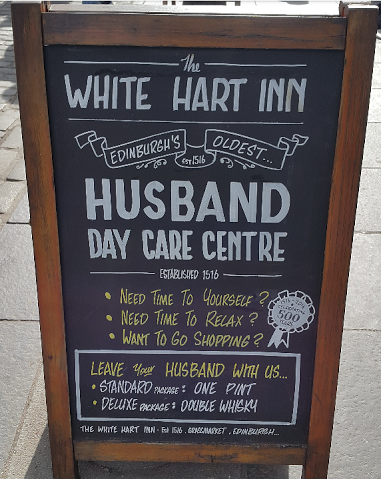 The
WHITE HART INN
EDINBURGH'S OLDEST...
EST 1516
HUSBAND
DAY CARE CENTRE
ESTABLISHED 1516
• NEED TIME TO YOURSELF?
• NEED TIME TO RELAX?
• WANT TO GO SHOPPING?
500
YEARS
LEAVE your HUSBAND WITH US...
• STANDARD PACKAGE: ONE PINT
• DELUXE PACKAGE: DOUBLE WHISKY
THE WHITE HART INN - Est 1516. GRASSMARKET, EDINBURGH...